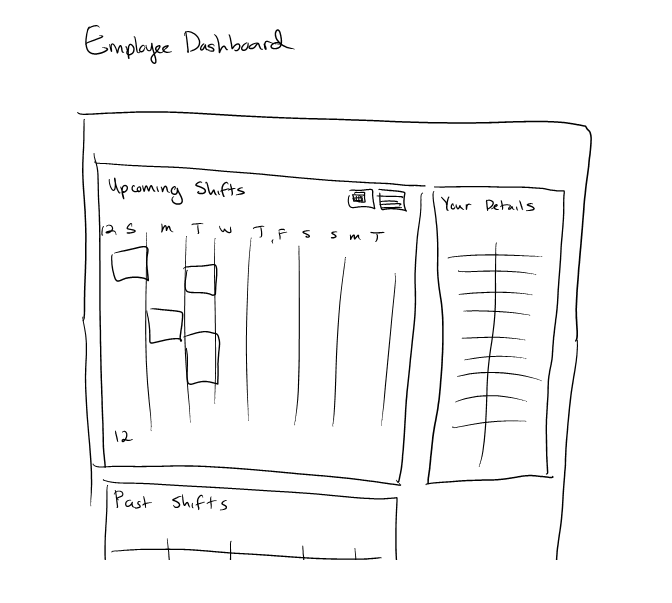 Employee Dashboard
Upcoming Shifts
12 S M T W T F S S M T
12
Your Details
Past Shifts